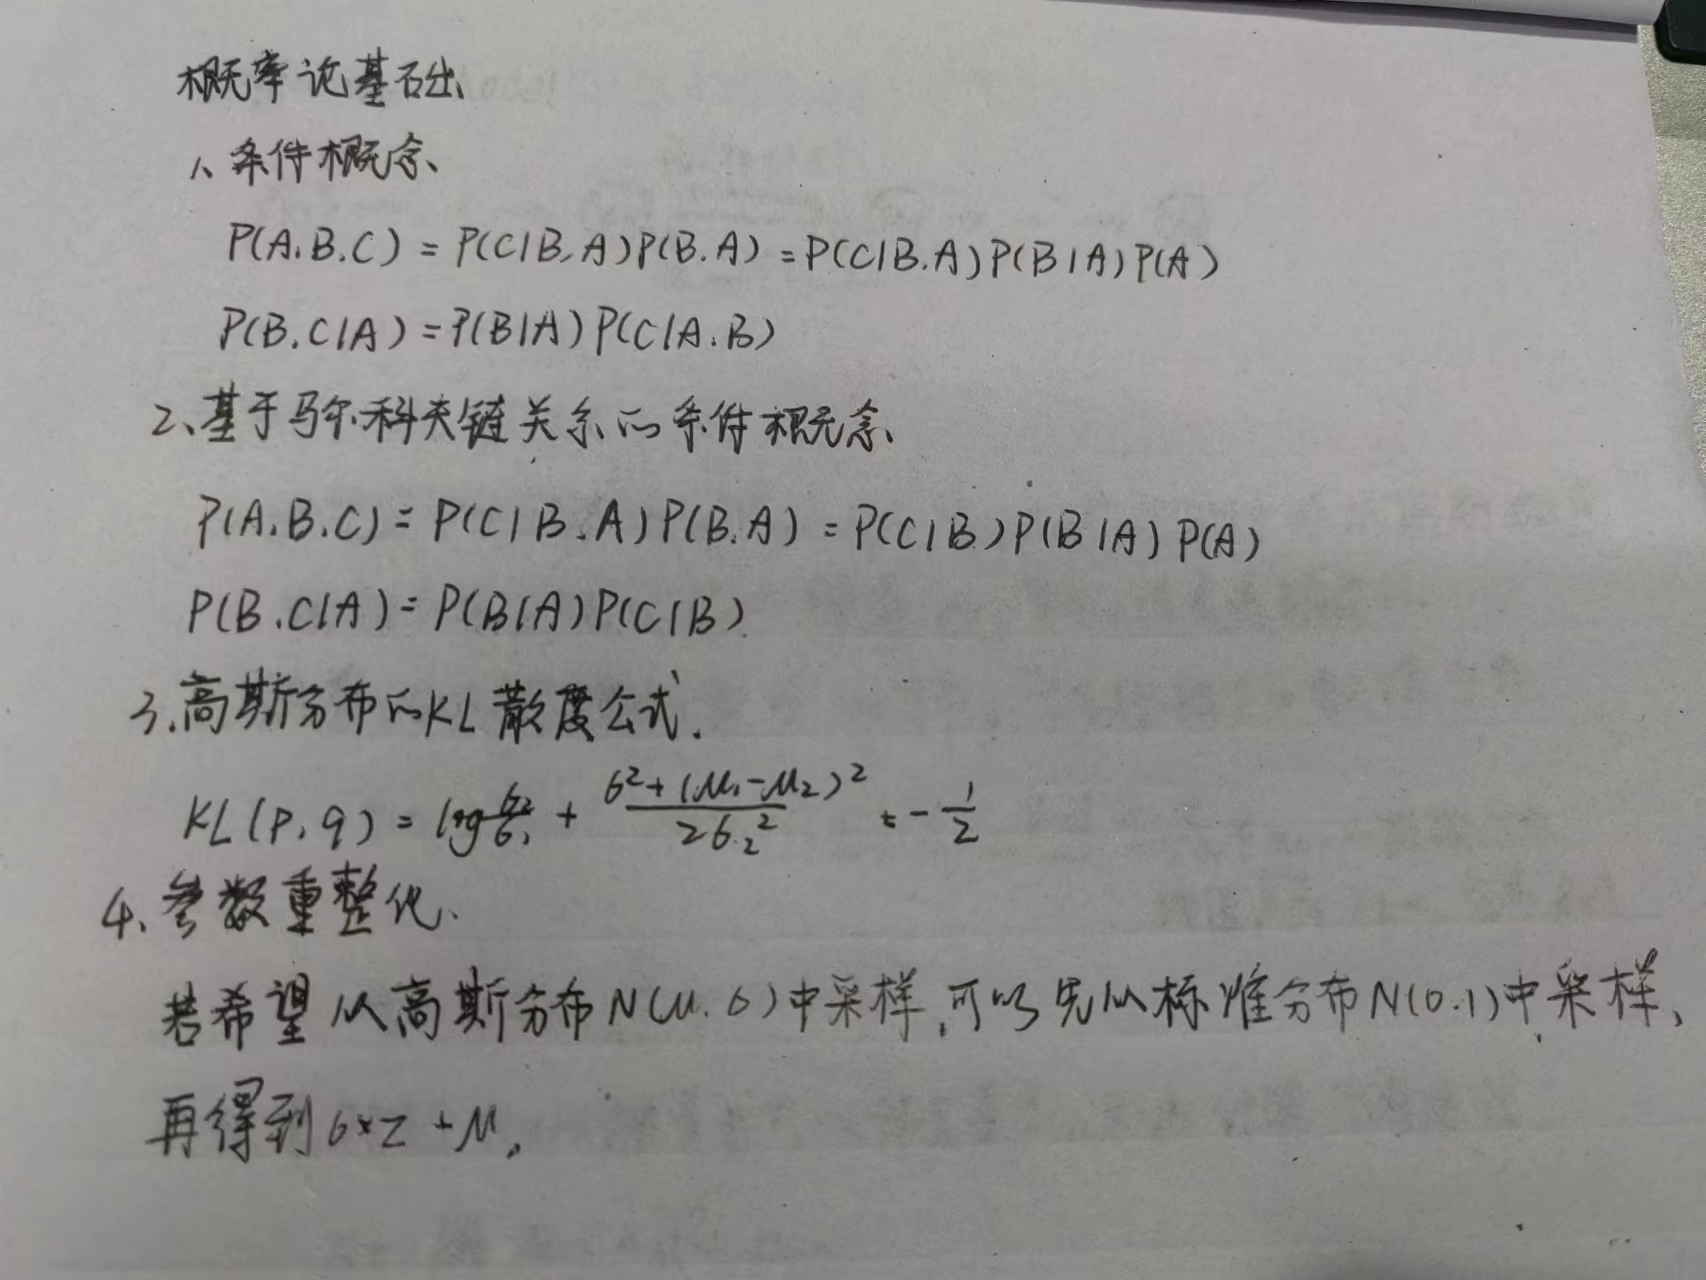 概率论基础
1、条件概念、
P(A.B.C) = P(C|B,A)P(B.A) = P(C|B.A)P(B|A)P(A)
P(B.C|A) = P(B|A)P(C|A.B)
2、基于马尔科夫链关系的条件概念、
P(A.B.C) = P(C|B.A)P(B.A) = P(C|B)P(B|A)P(A)
P(B.C|A) = P(B|A)P(C|B).
3.高斯分布的KL散度公式.
KL(P,q) = log σ2/σ1 + (σ²+(μ1-μ2)²)/(2σ2²) - 1/2
4、参数重整化、
若希望从高斯分布N(μ.σ)中采样,可以先从标准分布N(0.1)中采样、
再得到σ×Z+μ.